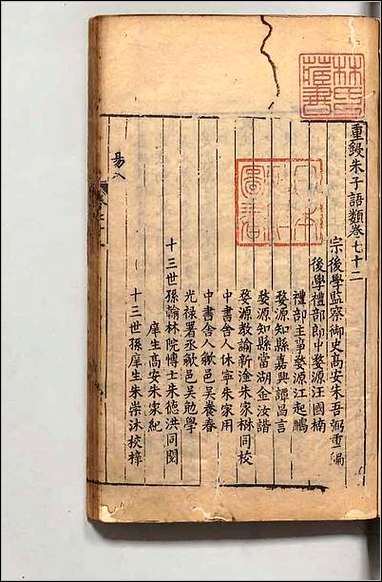 重鋟朱子語類卷七十二
宗後學監察御史高安朱吾弼重編
後學禮部郎中婺源汪國楠
禮部主事婺源江起鵬
婺源知縣嘉興譚昌言
婺源知縣當湖金汝諧
婺源教諭新淦朱家楙同校
中書舍人休寧朱家用
中書舍人歙邑吳養春
光祿署丞歙邑吳勉學
十三世孫翰林院博士朱德洪同閱
庠生高安朱家紀
十三世孫庠生朱崇沐校梓
易八
林氏藏書